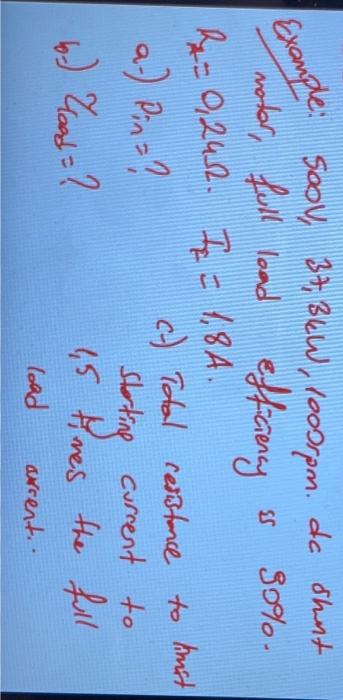 Example: 500V, 37,3kW, 1000rpm. dc shunt
motor, full load efficiency is 90%.
Ra = 0,24Ω. If = 1,8A.
a-) Pin = ?
b-) τload = ?
c-) Total resistance to limit
starting current to
1,5 times the full
load current..